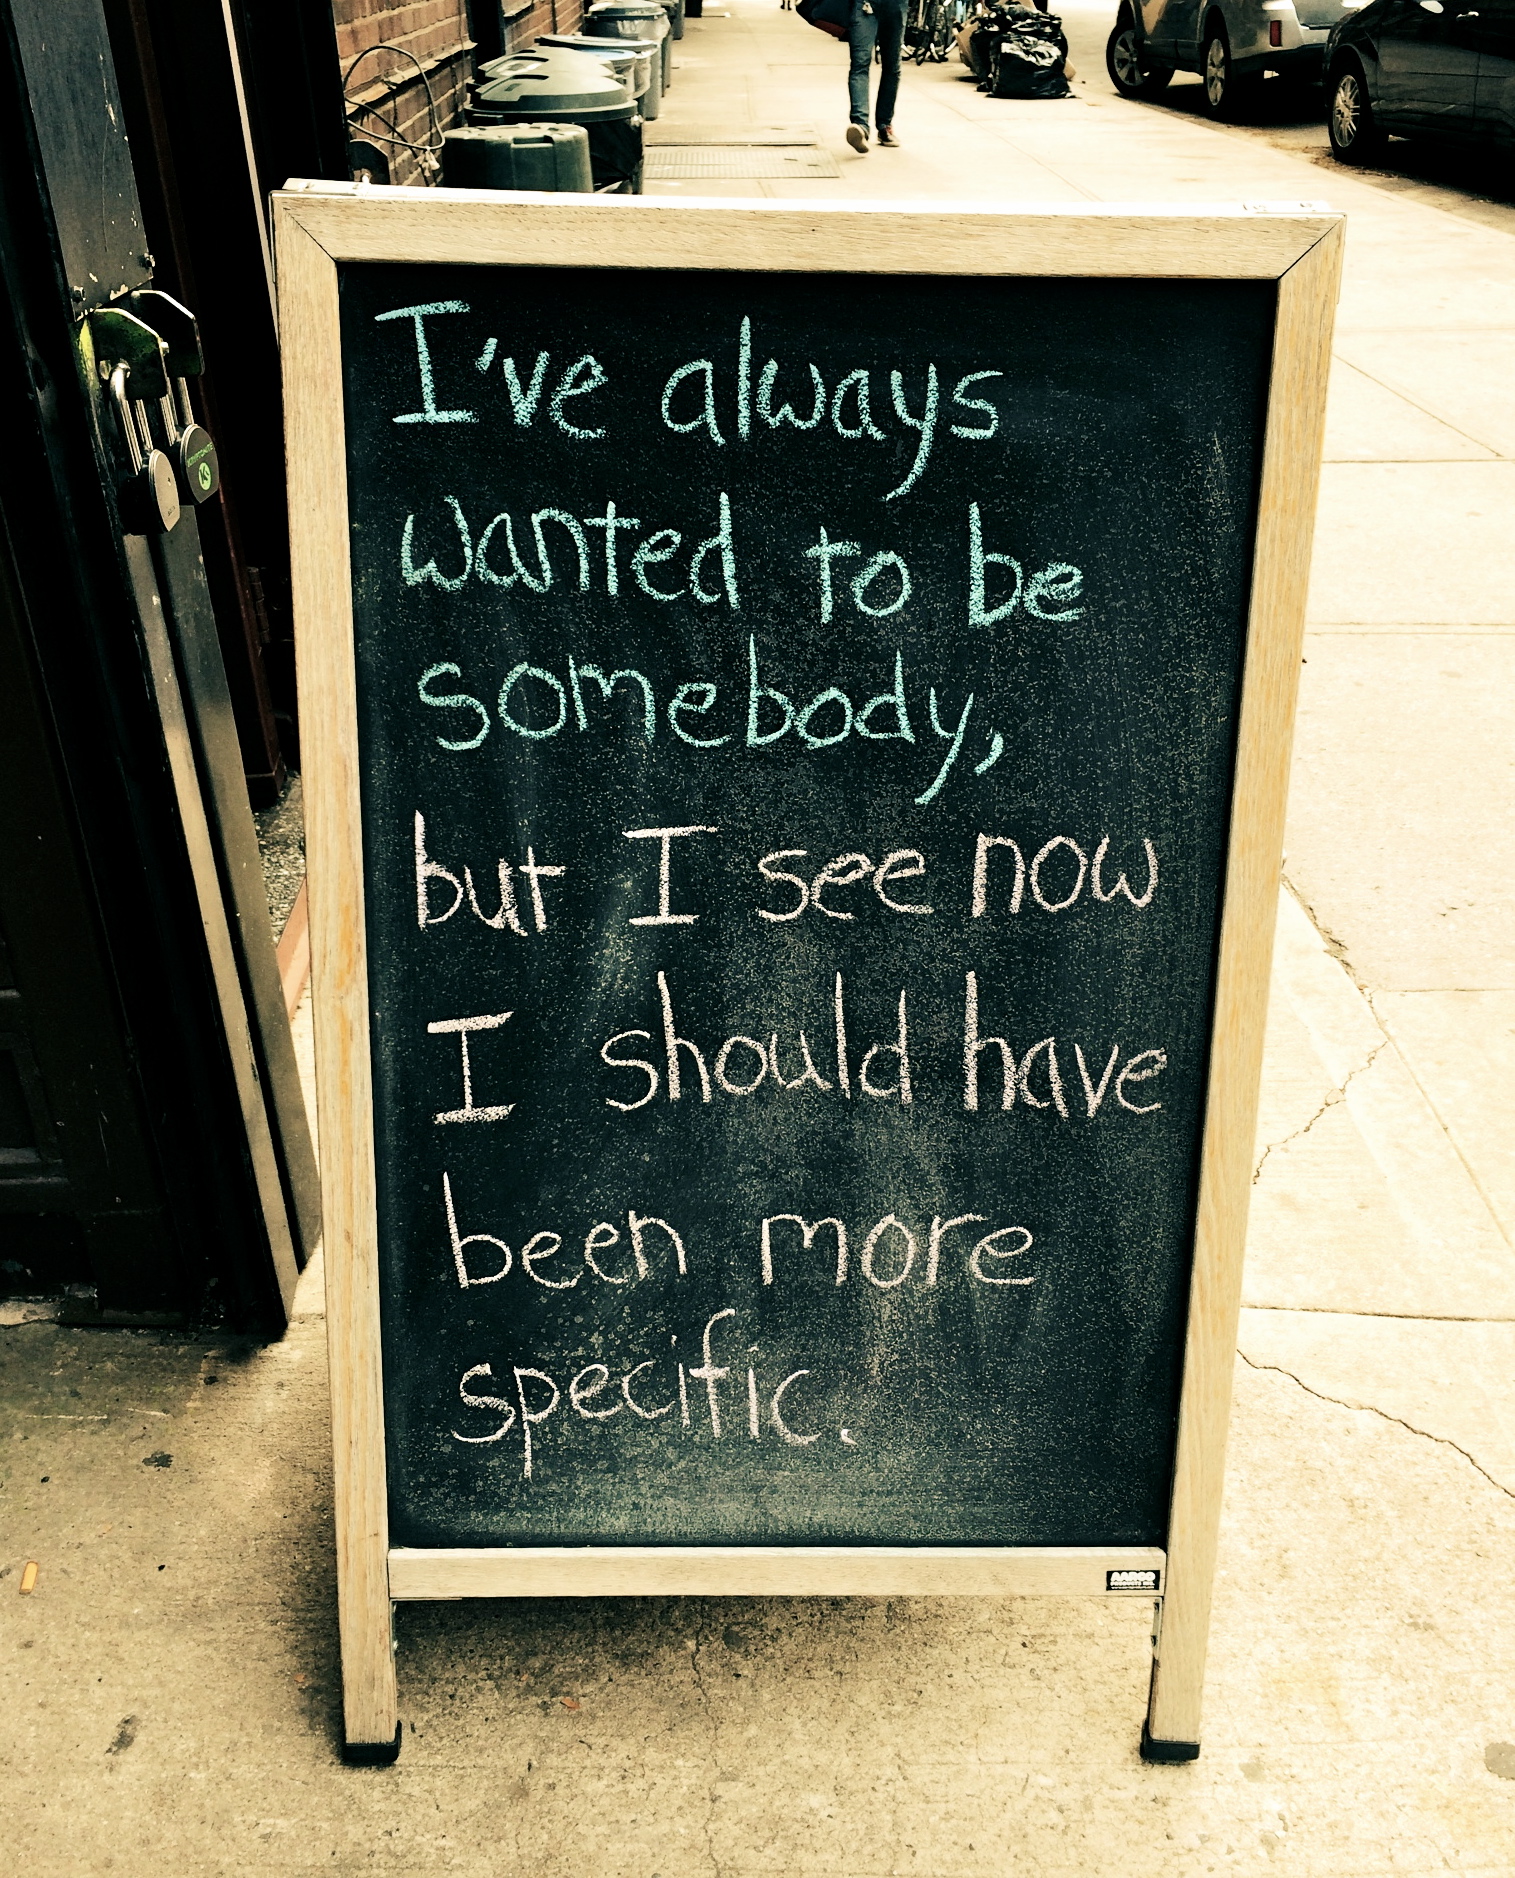 I've always
wanted to be
somebody,
but I see now
I should have
been more
specific.
AARCO